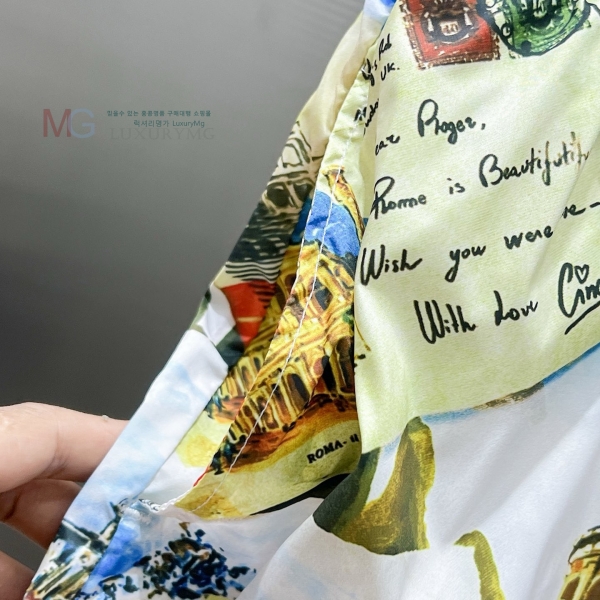 MG
믿을수 있는 홍콩명품 구매대행 쇼핑몰
럭셔리명가 LuxuryMg
LUXURYMG
UK.
ear Roger,
Rome is Beautiful
Wish you were
With Love
ROMA-